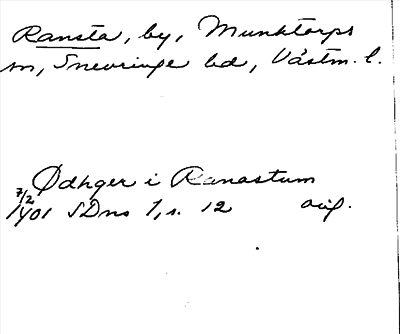 Ransta, by, Munktorps
sn, Snevringe hd, Västm. l.
Ødhger i Ranastum
7/2 1401 SDns 1, s. 12 orig.